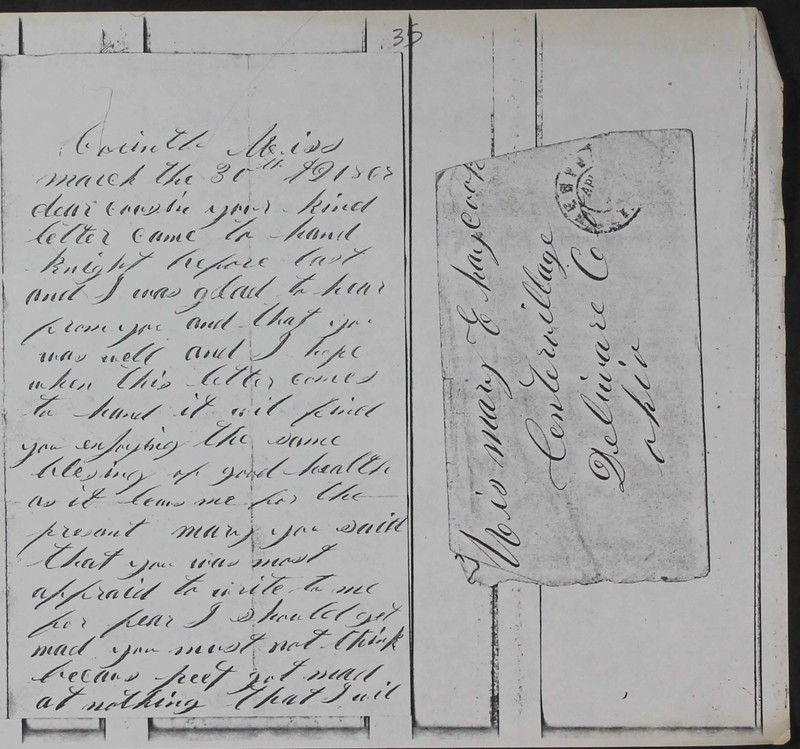 35
Corinth Miss
march the 30th AD 1863
dear cousin your kind
letter came to hand
knight before last
and I was glad to hear
from you and that you
was well and I hope
when this letter comes
to hand it wil find
you enjoying the same
blesing of good health
as it leavs me for the
present mary you said
that you was most
affraid to write to me
for fear I should get
mad you must not think
becaus peet got mad
at nothing that I wil
Mis mary E haycook
Centervillage
Deliware Co
ohio